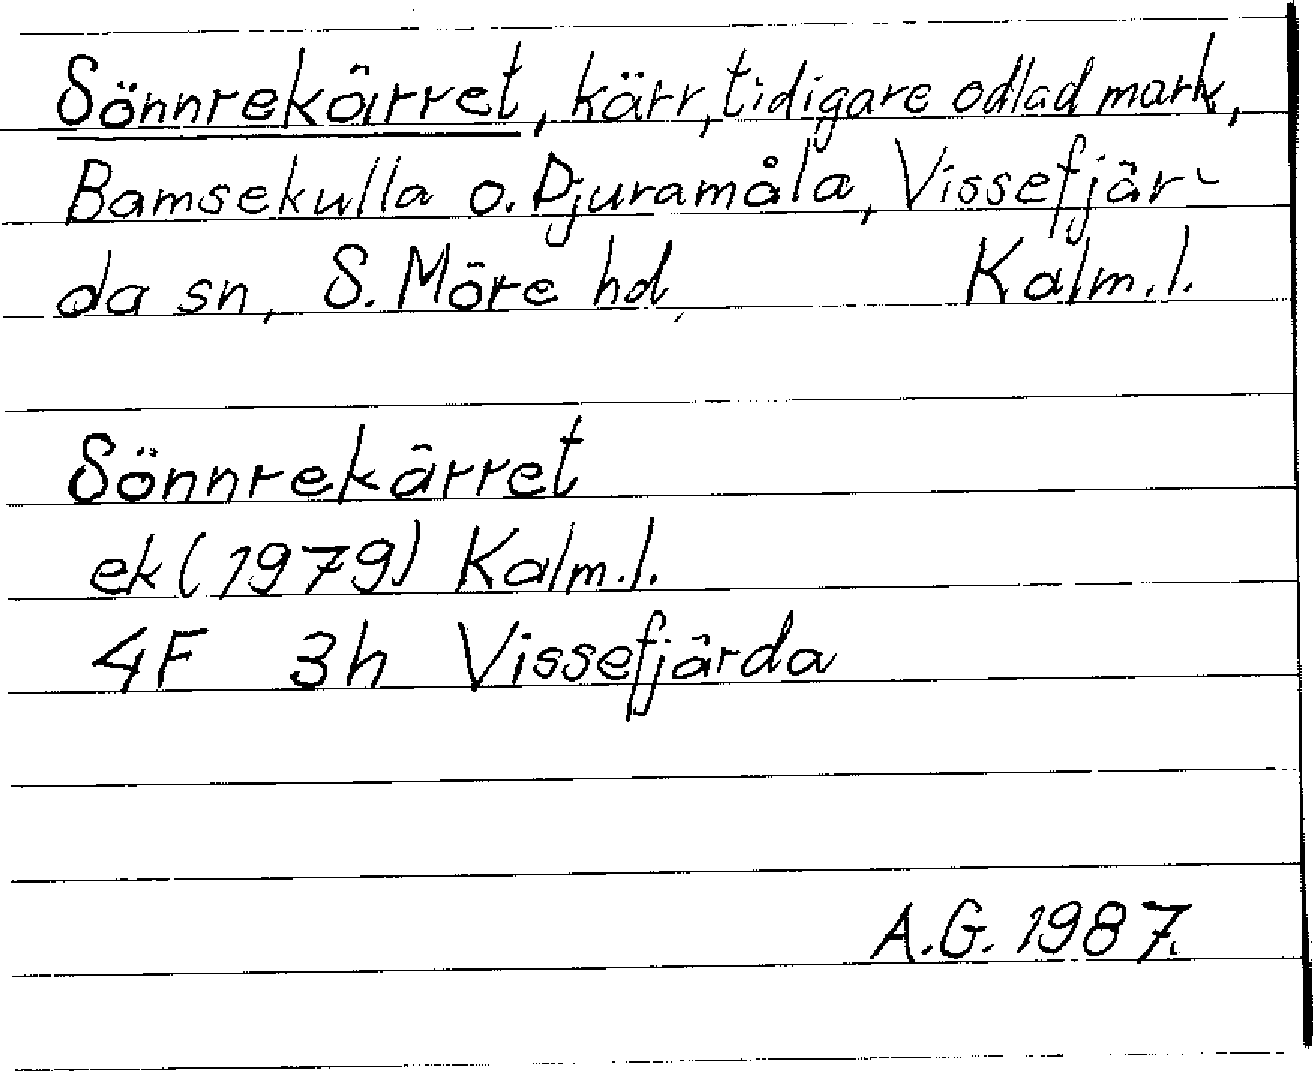 Sönnrekärret, kärr, tidigare odlad mark,
Bamsekulla o. Djuramåla, Vissefjär-
da sn, S. Möre hd, Kalm. l.
Sönnrekärret
ek (1979) Kalm. l.
4F 3h Vissefjärda
A.G. 1987.